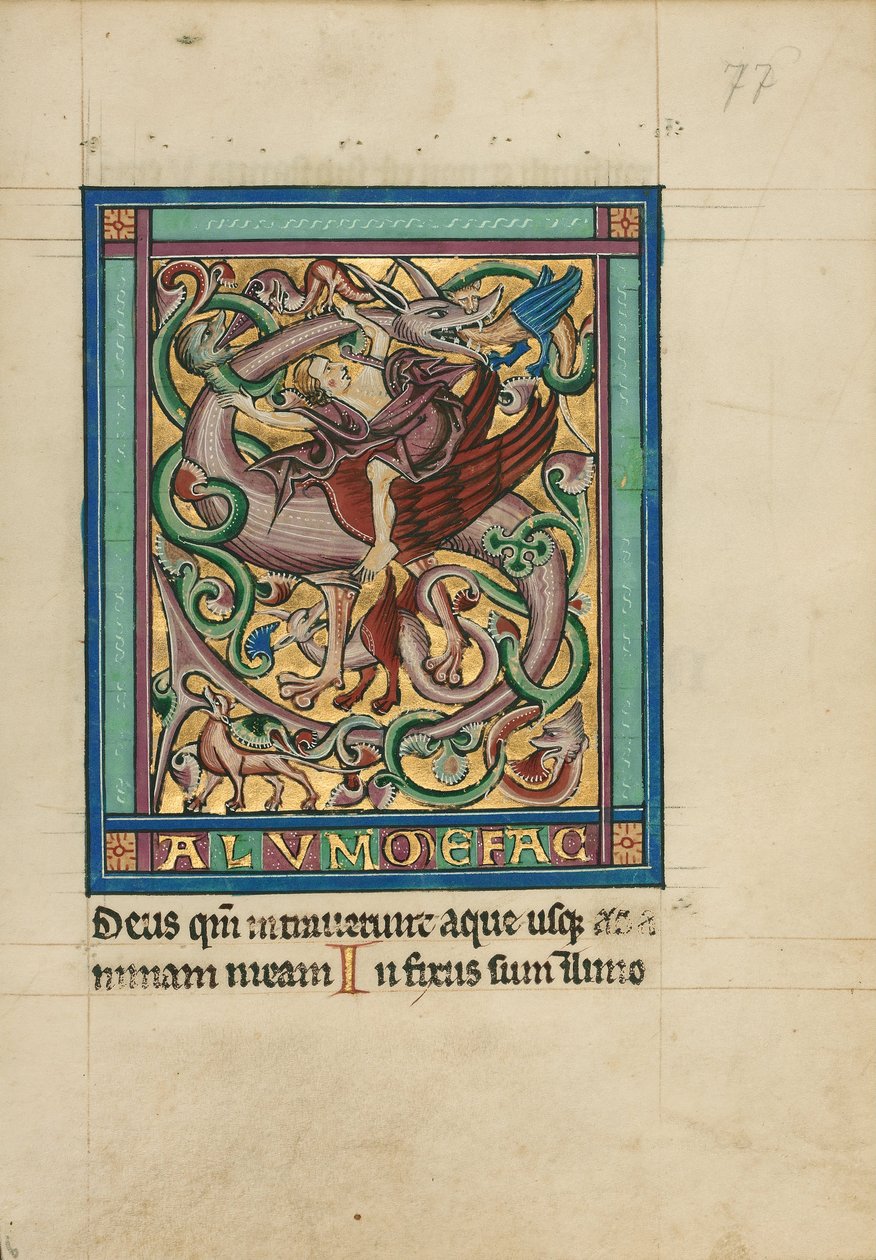 77
ALVMMEFAC
Deus qm̄ intrauerunt aque usq; ad a
nimam meam In fixus sum ī limo